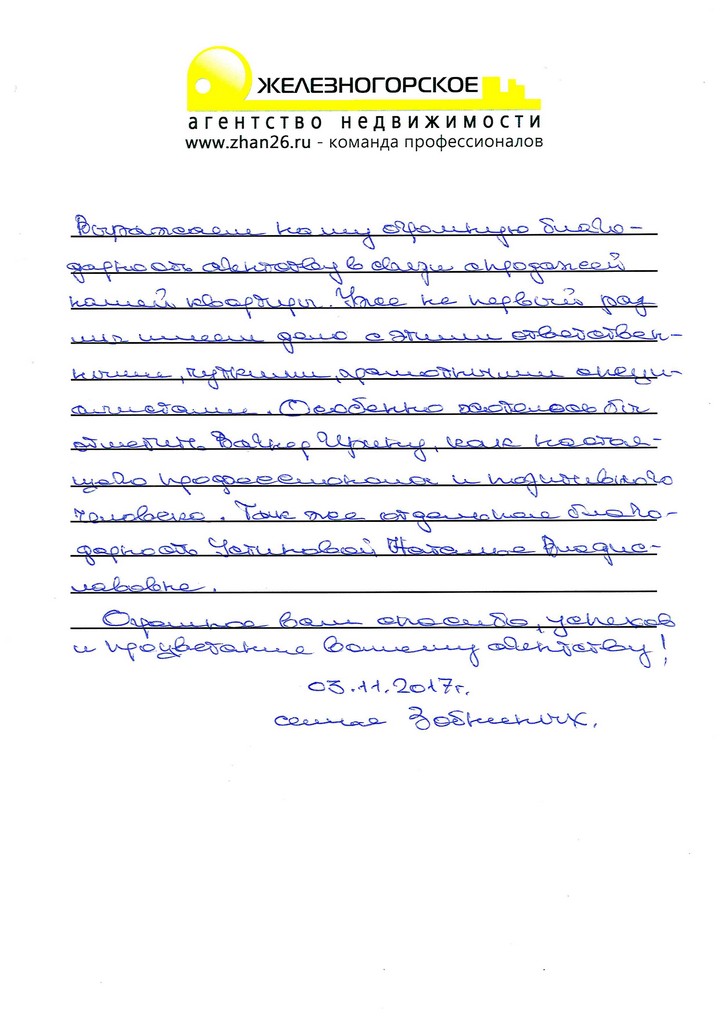 ЖЕЛЕЗНОГОРСКОЕ
агентство недвижимости
www.zhan26.ru - команда профессионалов
Выражаем нашу огромную благо-
дарность агентству в связи с продажей
нашей квартиры. Уже не первый раз
мы имеем дело с этими ответствен-
ными, чуткими, грамотными специ-
алистами. Особенно хотелось бы
отметить Вагнер Ирину, как настоя-
щего профессионала и позитивного
человека. Так же отдельная благо-
дарность Устиновой Наталье Владис-
лавовне.
Огромное вам спасибо, успехов
и процветание вашему агентству!
03.11.2017г.
семья